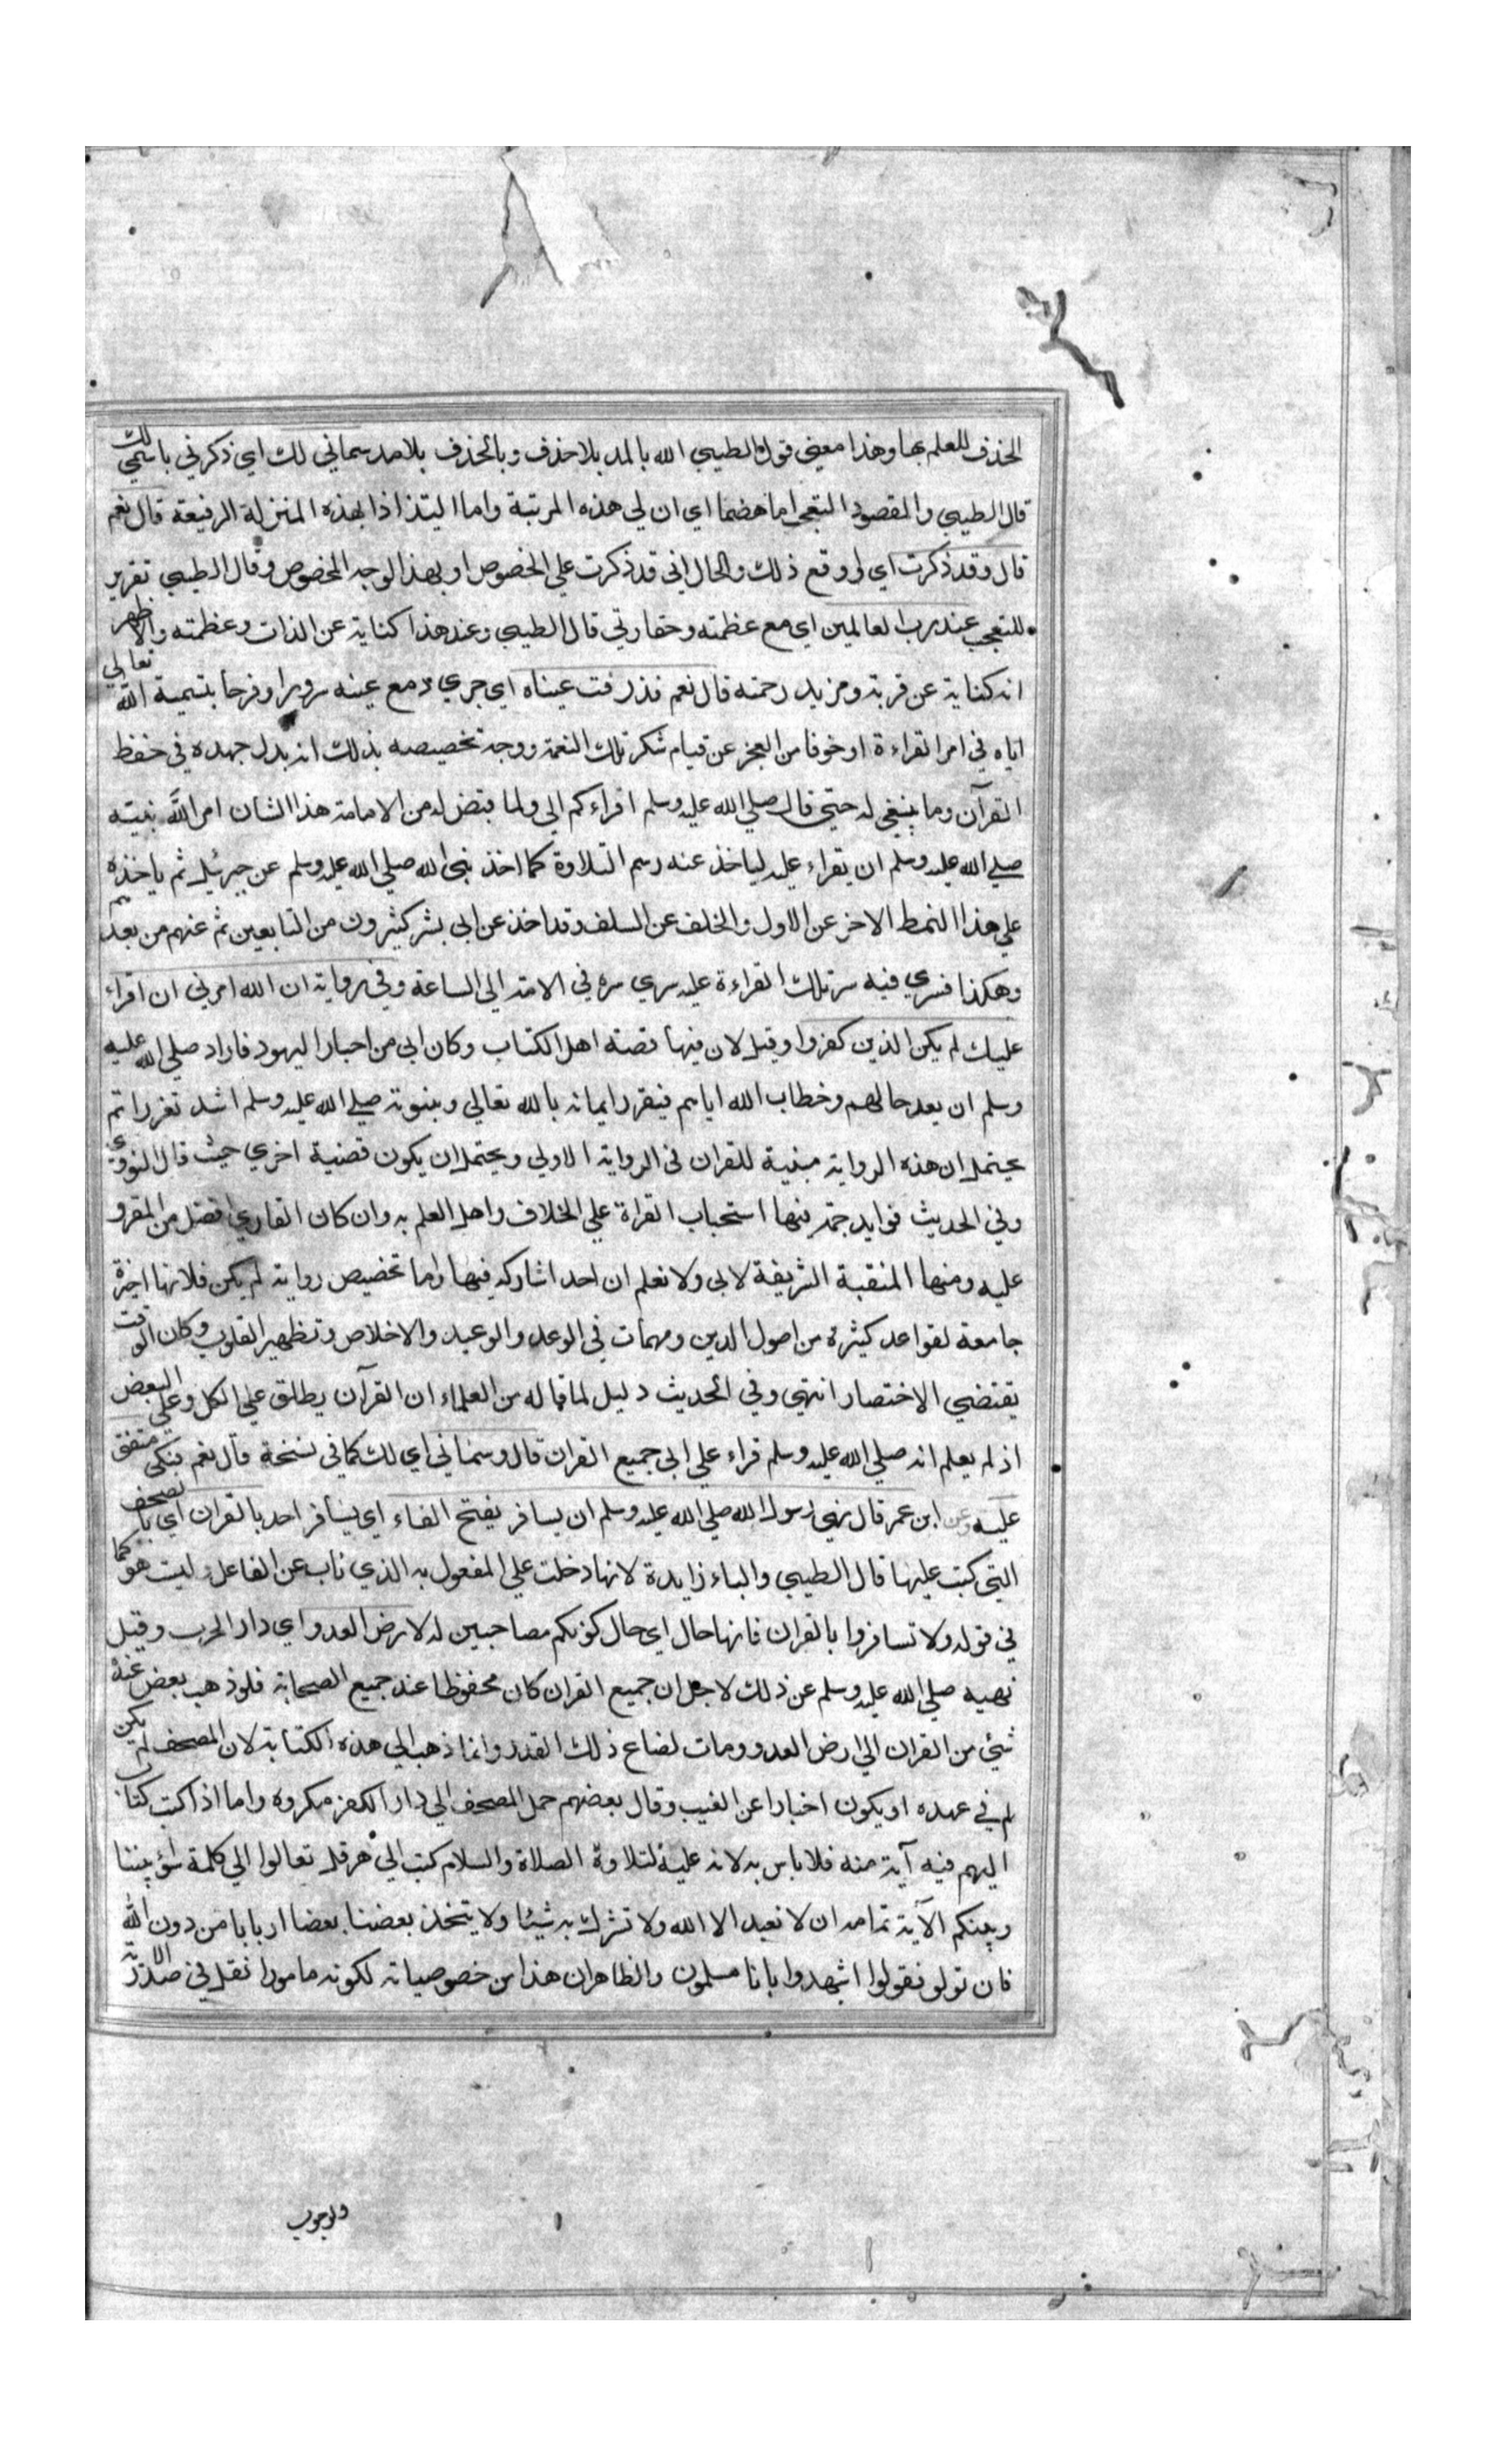 الحذف للعلم بها وهذا معنى قول الطيبي الله بالمد بلا حذف وبالحذف بلا مد سماني لك اي ذكرني باسمي لك
قال الطيبي والمقصود التعجب اما هضما اي ان لي هذه المرتبة واما التذاذا بهذه المنزلة الرفيعة قال نعم
قال وقد ذكرت اي او وقع ذلك والحال اني قد ذكرت علي الخصوص او بهذا الوجه المخصوص وقال الطيبي تقرير
للتعجب عند رب العالمين اي مع عظمته وحقارتي قال الطيبي وعند هذا كناية عن الذات وعظمته والاظهر
انه كناية عن قربة ومزيد رحمته قال نعم فذرفت عيناه اي جري دمع عينه سرورا وفرحا بتسمية الله تعالي
اياه في امر القراءة او خوفا من العجز عن قيام شكر تلك النعمة ووجه تخصيصه بذلك انه بذل جهده في حفظ
القرآن وما ينبغي له حتي قال صلي الله عليه وسلم اقراءكم ابي ولما قيض له من الامامة هذا الشان امر الله نبيه
صلي الله عليه وسلم ان يقراء عليه لياخذ عنه رسم التلاوة كما اخذ نبي الله صلي الله عليه وسلم عن جبرئيل ثم ياخذه
علي هذا النمط الاخر عن الاول والخلف عن السلف وقد اخذ عن ابي بشر كثيرون من التابعين ثم عنهم من بعدهم
وهكذا فسري فيه سر تلك القراءة عليه سري سره في الامة الي الساعة وفي رواية ان الله امرني ان اقراء
عليك لم يكن الذين كفروا وقيل لان فيها قصة اهل الكتاب وكان ابي من احبار اليهود فاراد صلي الله عليه
وسلم ان يعد حالهم وخطاب الله اياهم فيقرر ايمانه بالله تعالي وبنبوته صلي الله عليه وسلم اشد تقررا ثم
يحتمل ان هذه الرواية مبنية للقران في الرواية الاولي ويحتمل ان يكون قضية اخري حيث قال النووي
وفي الحديث فوايد جمة منها استحباب القراة علي الخلاف واهل العلم به وان كان القاري افضل من المقرو
عليه ومنها المنقبة الشريفة لابي ولا نعلم ان احدا شاركه فيها واما تخصيص رواية لم يكن فلانها اخيرة
جامعة لقواعد كثيرة من اصول الدين ومهمات في الوعد والوعيد والاخلاص وتطهير القلوب وكان الوقت
يقتضي الاختصار انتهي وفي الحديث دليل لما قاله من العلماء ان القرآن يطلق علي الكل وعلي البعض
اذ لم يعلم انه صلي الله عليه وسلم قراء علي ابي جميع القران قال وسماني اي لك كما في نسخة قال نعم فبكي متفق
عليه وعن ابن عمر قال نهي رسول الله صلي الله عليه وسلم ان يسافر بفتح الفاء اي يسافر احد بالقران اي بالصحف
التي كتب عليها قال الطيبي والباء زايدة لانها دخلت علي المفعول به الذي ناب عن الفاعل وليت هو كما
في قوله ولا تسافروا بالقران فانها حال اي حال كونكم مصاحبين له لارض العدو اي دار الحرب وقيل
نهيه صلي الله عليه وسلم عن ذلك لاجل ان جميع القران كان محفوظا عند جميع الصحابة فلو ذهب بعض عنده
شئ من القران الي ارض العدو ومات لضاع ذلك القدر وانما ذهب الي هذه الكتابة لان المصحف لم يكن
لم في عهده او يكون اخبارا عن الغيب وقال بعضهم حمل المصحف الي دار الكفر مكروه واما اذا كتب كتاب
اليهم فيه آية منه فلا باس به لانه عليه لتلاوة الصلاة والسلام كتب الي هرقل تعالوا الي كلمة سواء بيننا
وبينكم الآية تمامه ان لا نعبد الا الله ولا نشرك به شيئا ولا يتخذ بعضنا بعضا اربابا من دون الله
فان تولو فقولوا اشهدوا بانا مسلمون والظاهر ان هذا من خصوصياته لكونه مامورا نقل في صدر الاية
ولوجوب